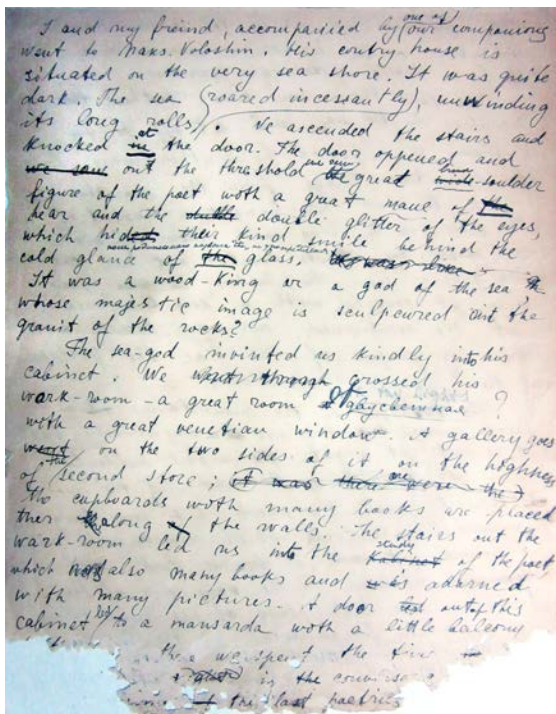 I and my freind, accompanied by one of our companions
went to Maks. Voloshin. His contry house is
situated on the very sea shore. It was quite
dark. The sea (roared incessantly), unwinding
its long rolls. We ascended the stairs and
knocked in at the door. The door oppened and
we saw out the threshold we saw the great wide broad-soulder
figure of the poet woth a great mane of the
hear and the double glitter of the eyes,
which hided their kind smile behind the
cold glance of the glass. It was like the
It was a wood-King or a god of the sea
whose majestic image is sculpcured out the
granit of the rocks?
The sea-god invinted us kindly into his
cabinet. We went through crossed his
work-room - a great room of ?
with a great venetian window. A gallery goes
went on the two sides of it on the highness
of the second store; (it was there were the)
The cupboards woth many books are placed
ther along the walls. The stairs out the
wark-room led us into the Kabinet study of the poet,
which was also many books and was adorned
with many pictures. A door led out of this
cabinet led to a mansarda woth a little balcony
there we spent the time
in the conversation
the last poetries